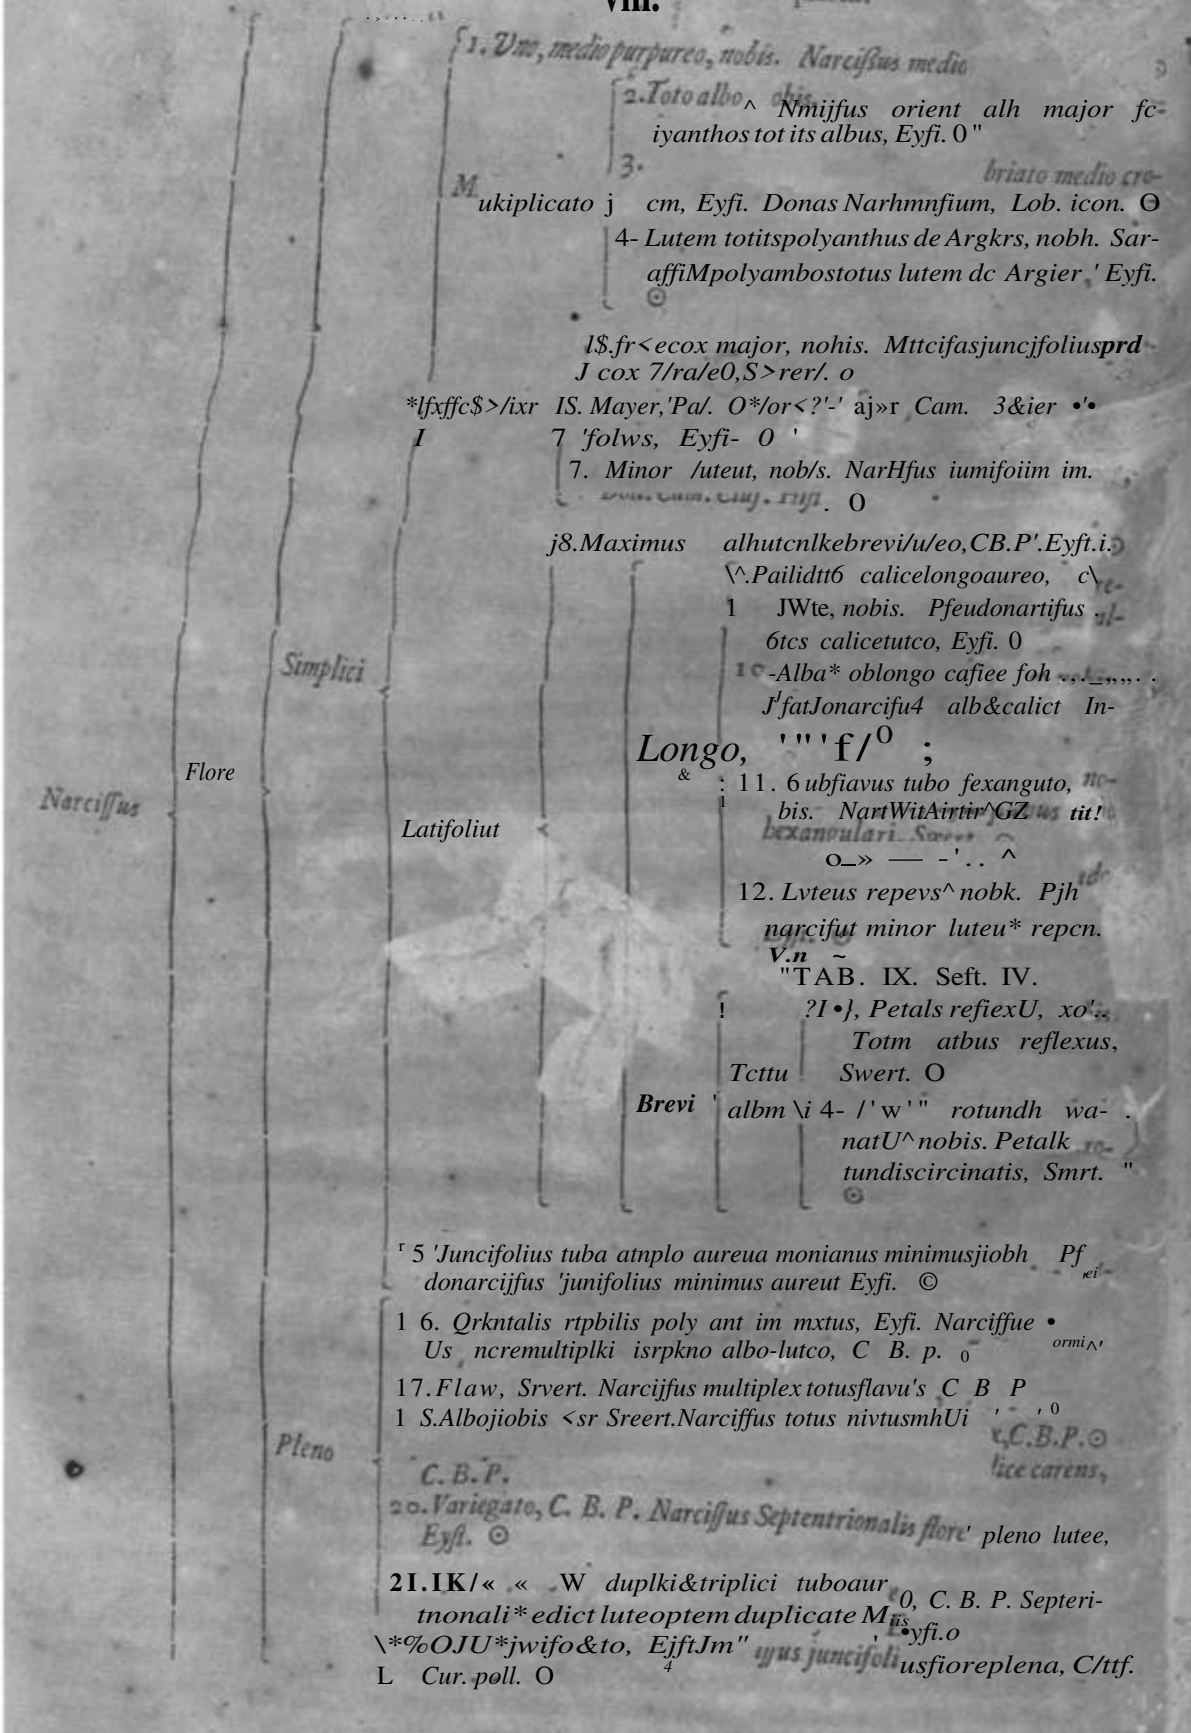 VIII.
1. Uno, medio purpureo, nobis. Narcißus medio
2. Toto albo obis.
^ Nmijfus orient alh major fc-
iyanthos tot its albus, Eyfi. 0 "
3.
briato medio cro-
M
ukiplicato j cm, Eyfi. Donas Narhmnfium, Lob. icon. O
4- Lutem totitspolyanthus de Argkrs, nobh. Sar-
affiMpolyambostotus lutem dc Argier ,' Eyfi.
☉
l$.fr<ecox major, nohis. Mttcifasjuncjfoliusprd
J cox 7/ra/e0,S>rer/. o
*lfxffc$>/ixr IS. Mayer,'Pa/. O*/or<?'-' aj»r Cam. 3&ier •'•
I 7 'folws, Eyfi- 0 '
7. Minor /uteut, nob/s. NarHfus iumifoiim im.
. O
j8.Maximus alhutcnlkebrevi/u/eo,CB.P'.Eyft.i.
\^.Pailidtt6 calicelongoaureo, c\
1 JWte, nobis. Pfeudonartifus .
6tcs calicetutco, Eyfi. 0
10 -Alba* oblongo cafiee foh .,._,,,,. .
J'fatJonarcifu4 alb&calict In-
Simplici
Longo, '"'f/O ;
&
Flore
: 11. 6 ubfiavus tubo fexanguto, no-
1
Narcissus
bis. NartWitAirtir^GZ tit!
Latifoliut
hexangulari. Swert
o_» — -'.. ^
12. Lvteus repevs^ nobk. Pjh
narcifut minor luteu* repcn.
V.n ~
"TAB. IX. Seft. IV.
! ?I •}, Petals refiexU, xo'..
Totm atbus reflexus,
Tcttu Swert. O
Brevi ' albm \i 4- /'w'" rotundh wa- .
natU^ nobis. Petalk ro-
tundiscircinatis, Smrt. "
☉
r 5 'Juncifolius tuba atnplo aureua monianus minimusjiobh Pf
,ei -
donarcijfus 'junifolius minimus aureut Eyfi. ©
1 6. Qrkntalis rtpbilis poly ant im mxtus, Eyfi. Narciffue •
Us ncremultiplki isrpkno albo-lutco, C B. p. 0 ormi^'
17.Flaw, Srvert. Narcijfus multiplex totusflavu's C B P
1 S.Albojiobis <sr Sreert.Narciffus totus nivtusmhUi ' ' 0
x, C.B.P. ☉
Pleno
lice carens,
C. B. P.
20. Variegato, C. B. P. Narcissus Septentrionalis flore' pleno lutee,
Eyst. ☉
2I.IK/« « W duplki&triplici tuboaur 0, C. B. P. Septeri-
tnonali* edict luteoptem duplicate Miis
•yfi.o
\*%OJU*jwifo&to, EjftJm" ' ssus juncifoli usfioreplena, C/ttf.
4
L Cur. poll. O